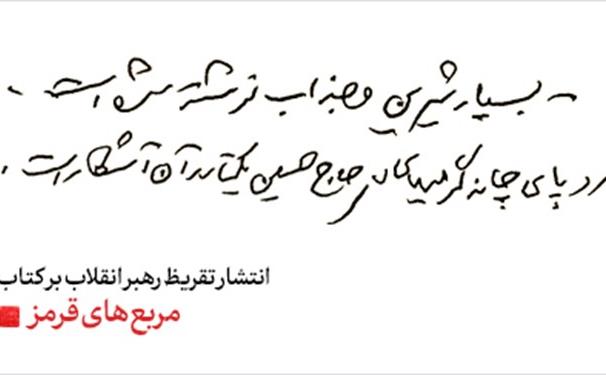 - بسیار شیرین و جذاب نوشته شده است.
رد پای چانه گرم حاج حسین یکتا در آن آشکار است.
انتشار تقریظ رهبر انقلاب بر کتاب
مربع‌های قرمز